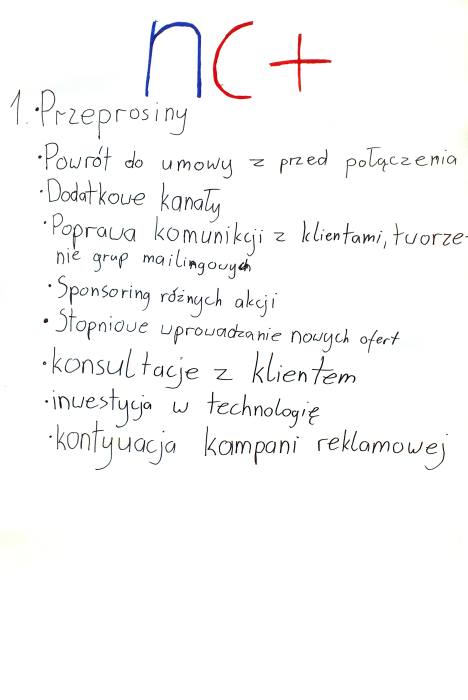 nc+
1. • Przeprosiny
• Powrót do umowy z przed połączenia
• Dodatkowe kanały
• Poprawa komunikcji z klientami, tworze-
nie grup mailingowych
• Sponsoring różnych akcji
• Stopniowe wprowadzanie nowych ofert
• konsultacje z klientem
• inwestycja w technologię
• kontyuacja kampani reklamowej